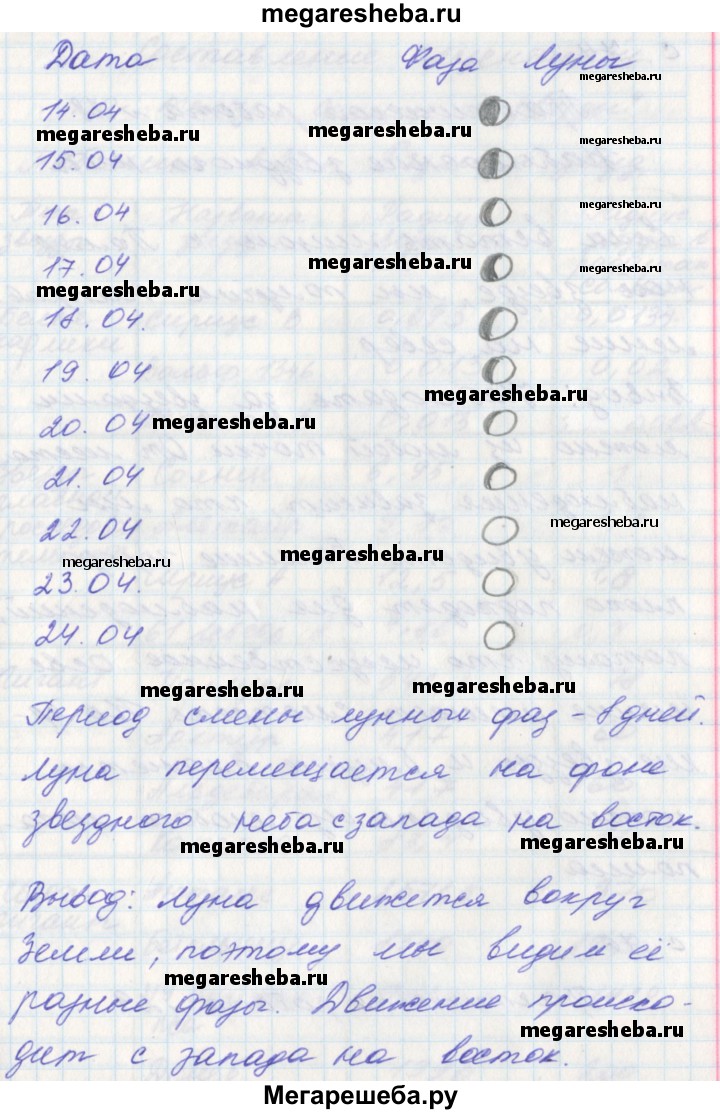 megaresheba.ru
Дата Фаза Луны
megaresheba.ru
14.04
megaresheba.ru megaresheba.ru megaresheba.ru
15.04
16.04
megaresheba.ru
17.04 megaresheba.ru megaresheba.ru
megaresheba.ru
18.04.
19.04
megaresheba.ru
20.04 megaresheba.ru
21.04
22.04 megaresheba.ru
megaresheba.ru megaresheba.ru
23.04.
24.04
megaresheba.ru megaresheba.ru
Период смены лунных фаз - 8 дней.
Луна перемещается на фоне
звездного неба с запада на восток.
megaresheba.ru megaresheba.ru
Вывод: Луна движется вокруг
Земли, поэтому мы видим её
megaresheba.ru
разные фазы. Движение происхо-
megaresheba.ru
дит с запада на восток.
Мегарешеба.ру